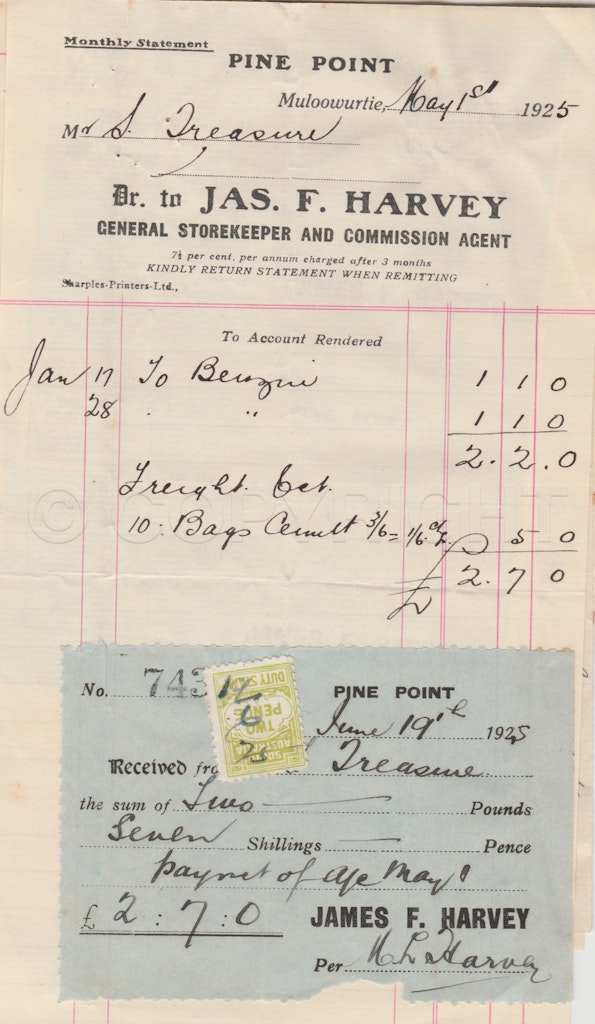 Monthly Statement
PINE POINT
Muloowurtie, May 1st 1925
Mr S. Treasure
Dr. to JAS. F. HARVEY
GENERAL STOREKEEPER AND COMMISSION AGENT
7½ per cent. per annum charged after 3 months
KINDLY RETURN STATEMENT WHEN REMITTING
Sharples-Printers-Ltd.,
To Account Rendered
Jan 17 To Benzine 1 1 0
28 " " 1 1 0
2.2.0
Freight
10 Bags Cement 3/6 = 1/6 5 0
£ 2.7 0
© COPYRIGHT
No. 743
PINE POINT
June 19th 1925
19/6/25
DUTY STAMP
TWO PENCE
SOUTH AUSTRALIA
Received from Treasure
the sum of Two Pounds
Seven Shillings Pence
paymet of a/c May 1
£ 2:7:0 JAMES F. HARVEY
Per M L Harvey